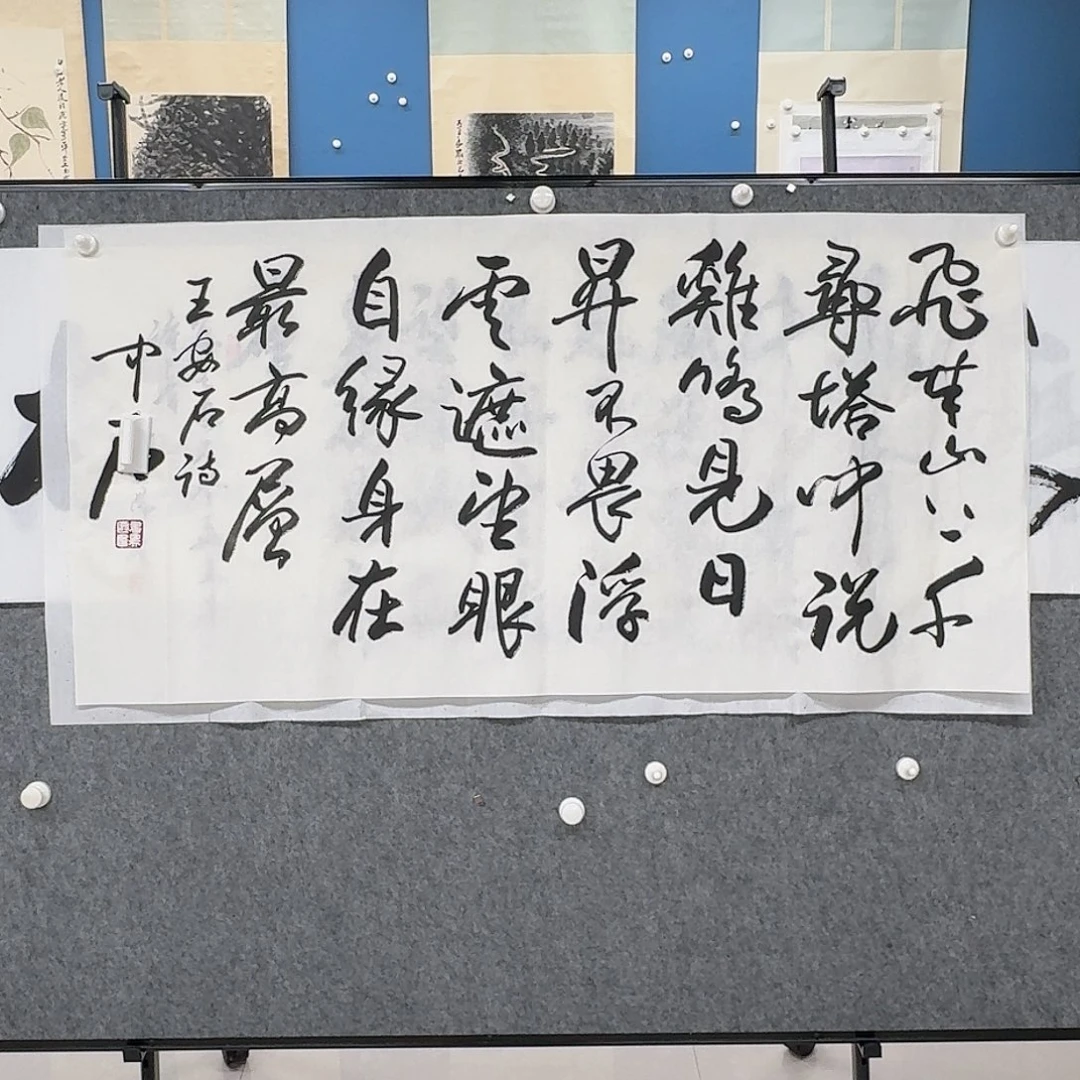 飛来山上千
尋塔说
雞鳴見日
昇不畏浮
雲遮望眼
自緣身在
最高層
王安石詩
中石